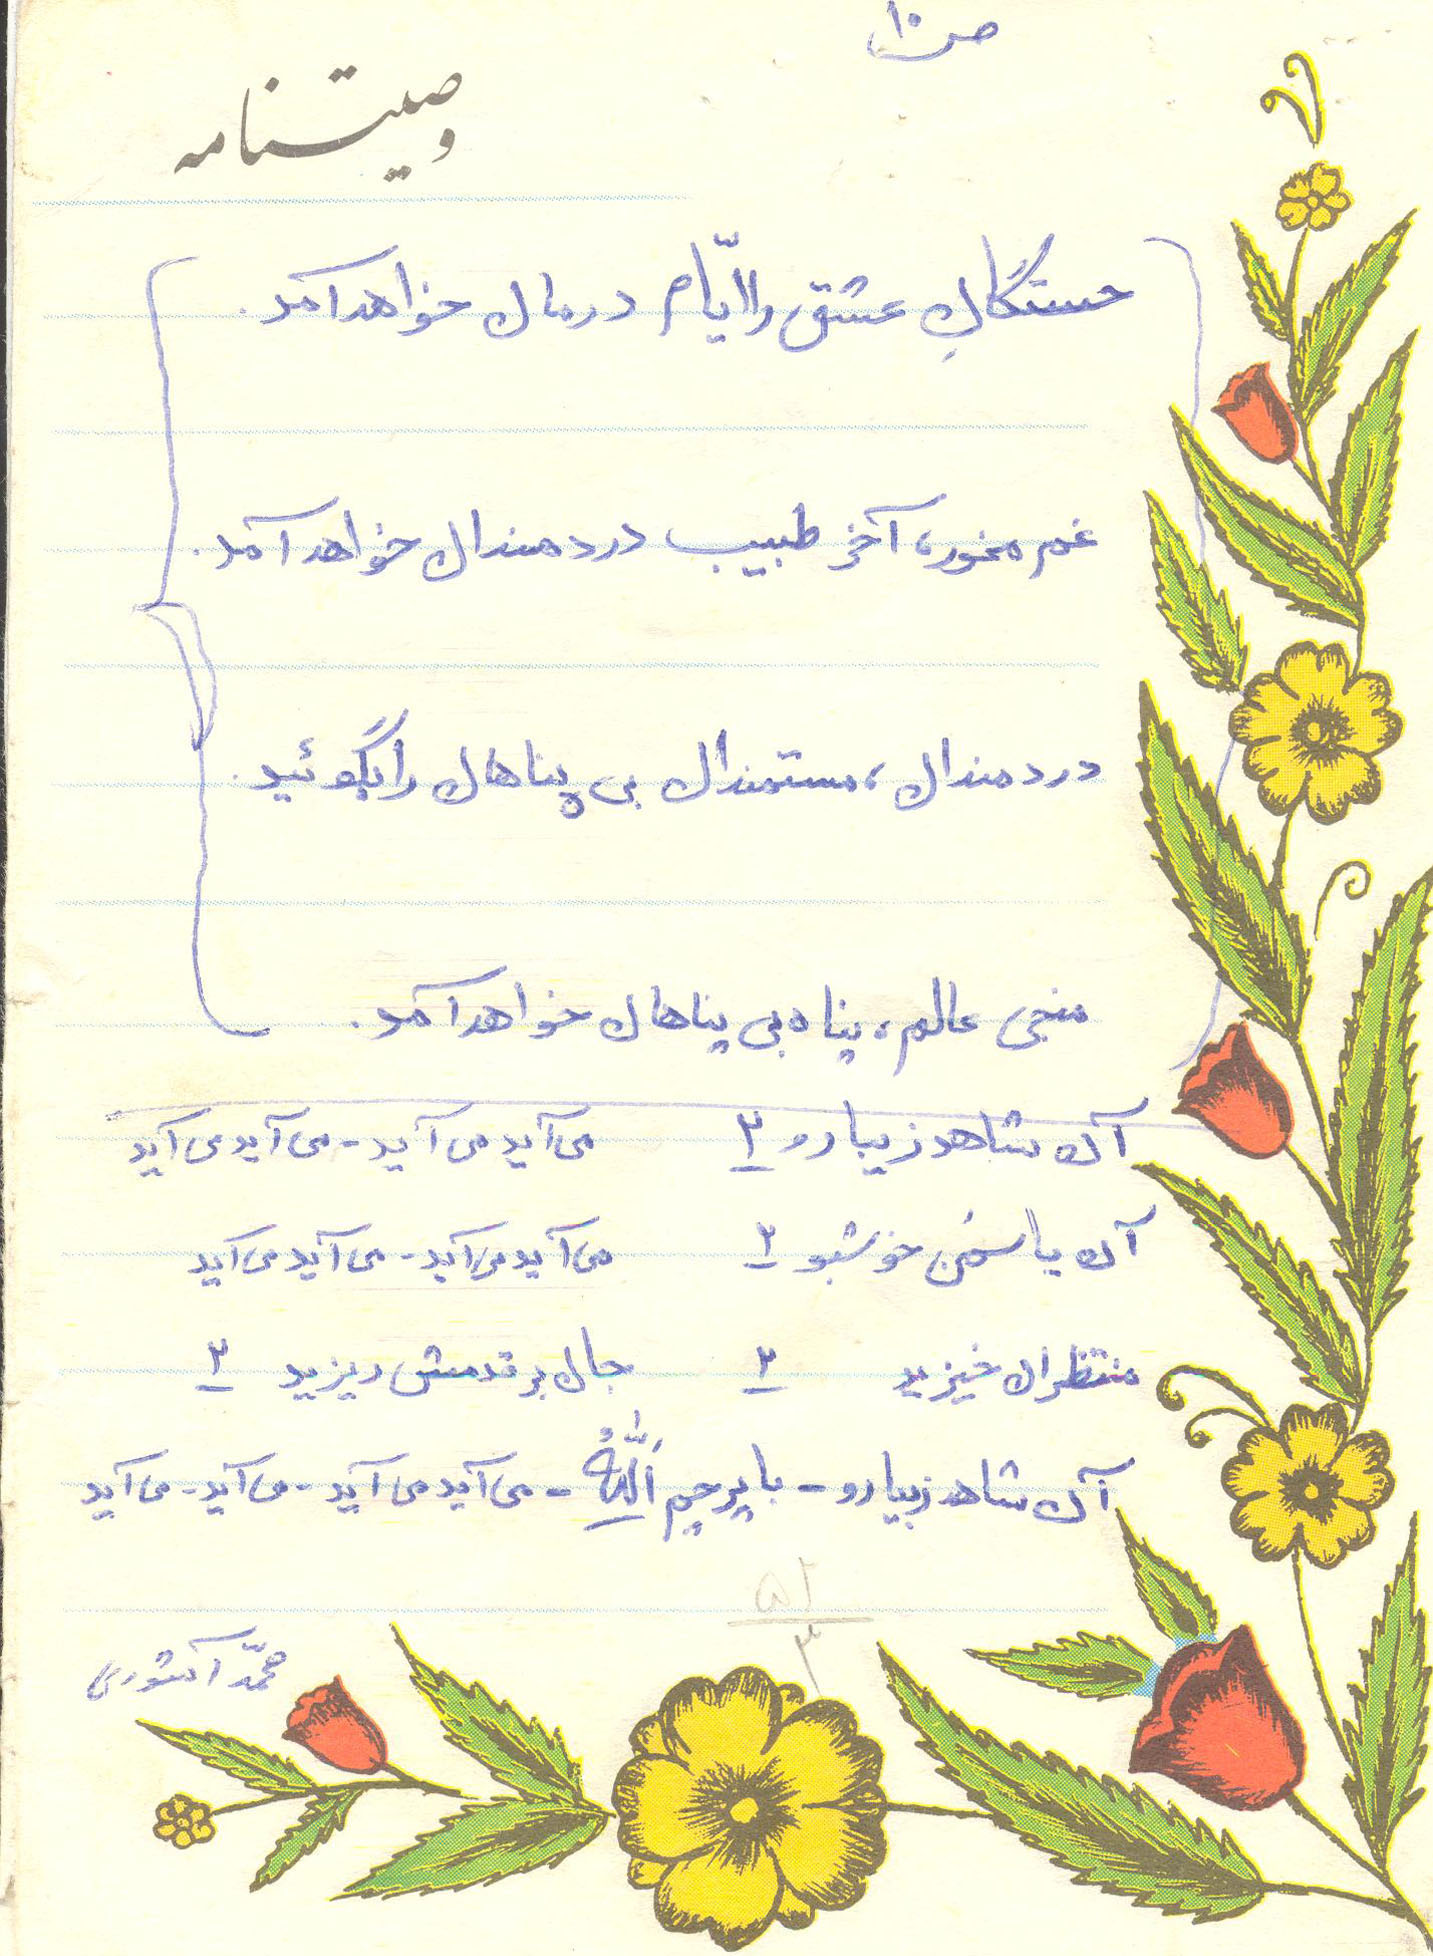 ص ۱۰
وصیتنامه
خستگانِ عشق را ایّام درمان خواهد آمد.
غم مخور، آخر طبیب دردمندان خواهد آمد.
دردمندان، مستمندان بی پناهان را بگوئید.
منجی عالم، پناه بی پناهان خواهد آمد.
آن شاهد زیبا رو ۲ می آید می آید - می آید می آید
آن یاسمن خوشبو ۲ می آید می آید - می آید می آید
منتظران خیزید ۲ جان بر قدمش ریزید ۲
آن شاهد زیبا رو - با پرچم اَللّٰهُ - می آید می آید - می آید - می آید
۵۲
۳
محمّد